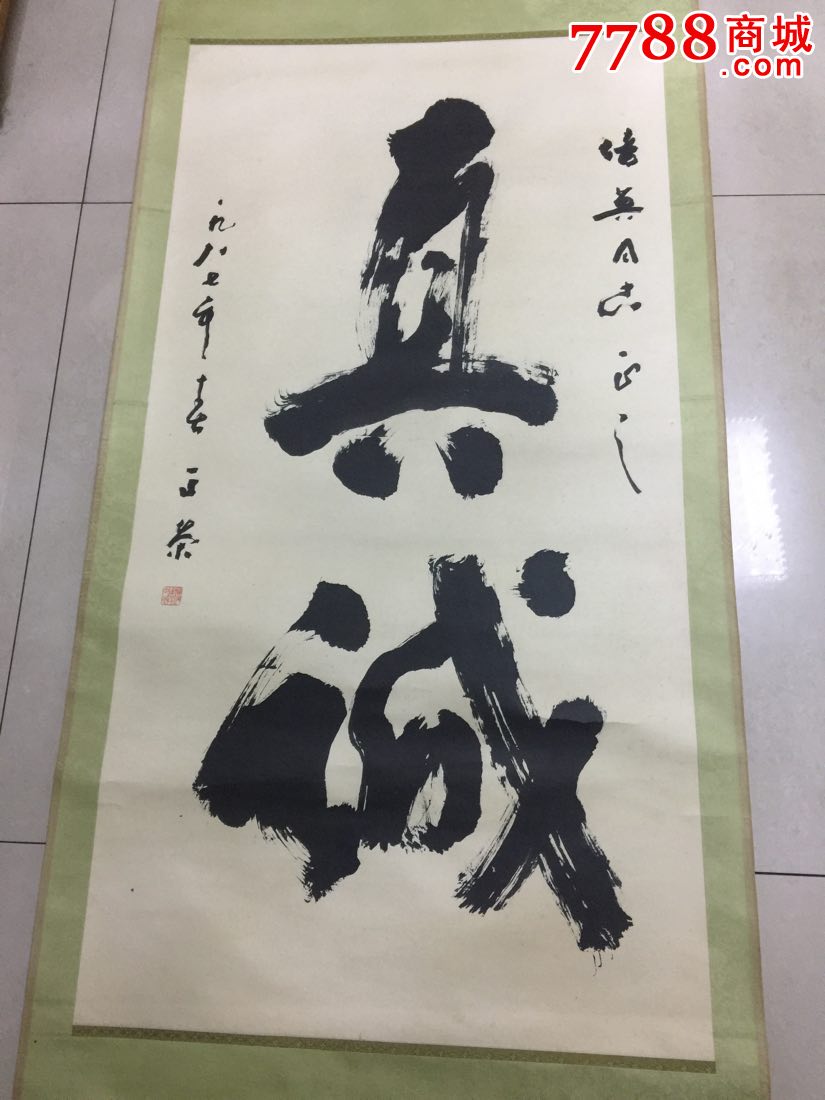 7788商城
.com
培英同志正之
真诚
一九八七年春